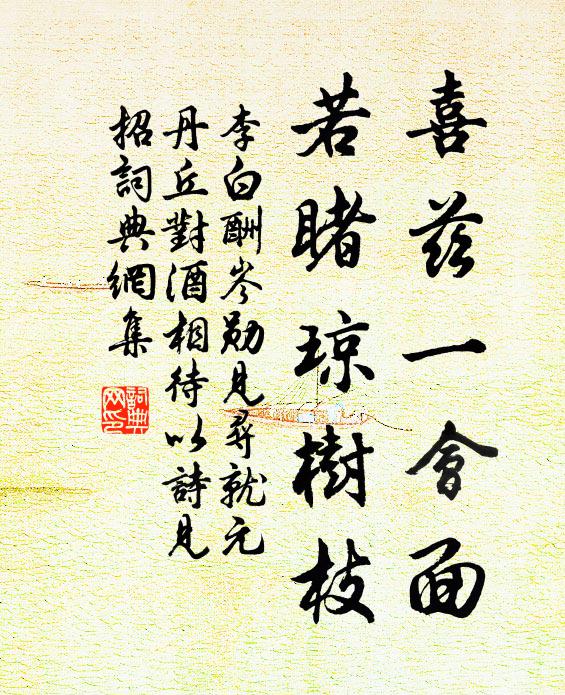 喜茲一會面
若睹琼樹枝
李白酬岑勛見尋就元
丹丘對酒相待以詩見
招詞典網集
詞典
网印